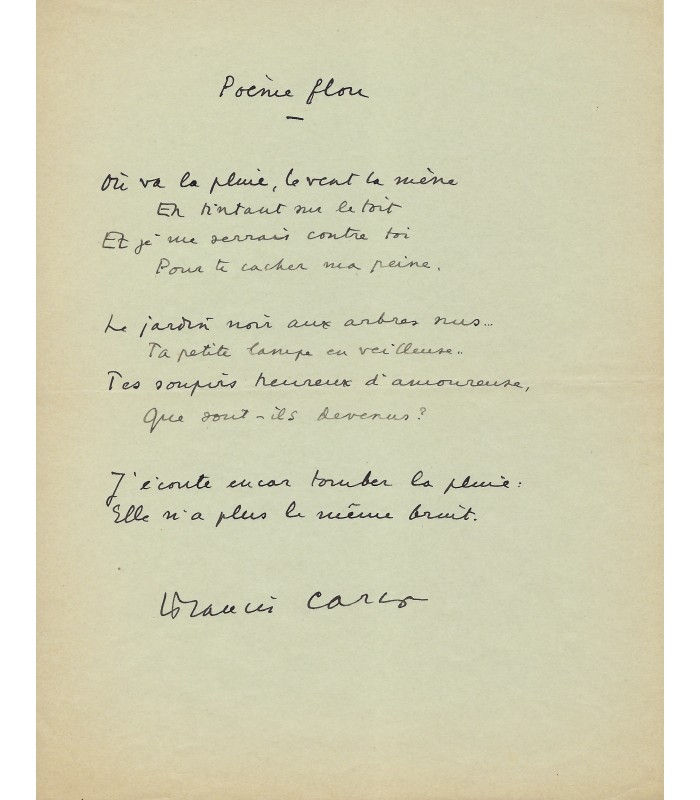 Poème flou
Où va la pluie, le vent la mène
En tintant sur le toit
Et je me serrais contre toi
Pour te cacher ma peine.
Le jardin noir aux arbres nus...
Ta petite lampe en veilleuse..
Tes soupirs heureux d'amoureuse,
Que sont-ils devenus?
J'écoute encor tomber la pluie:
Elle n'a plus le même bruit.
Francis Carco